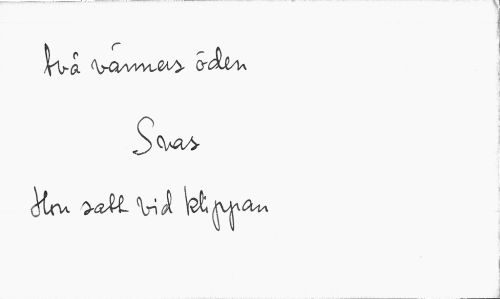 två vänners öden
Svas
Hon satt vid klippan